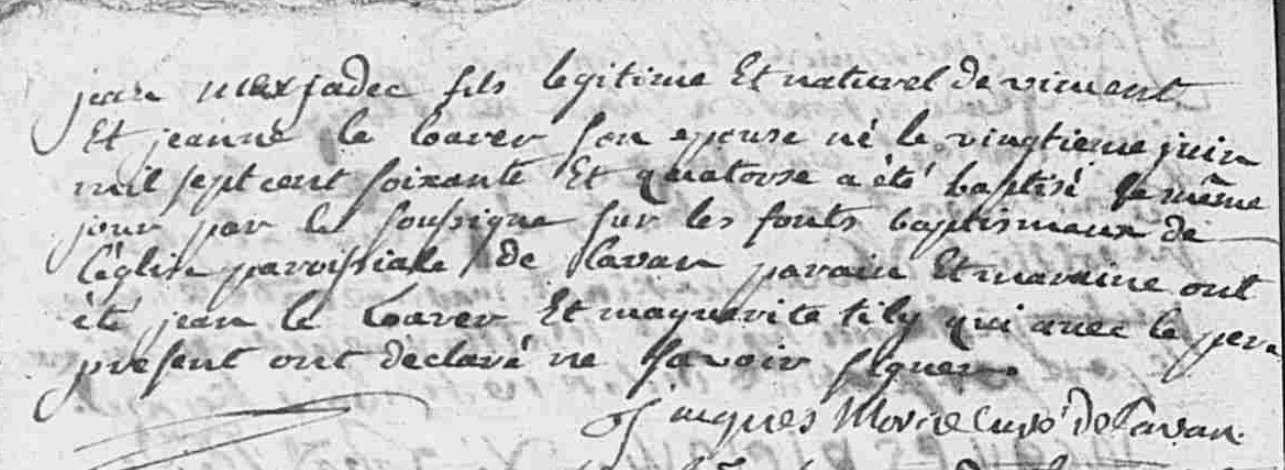 jean merjadec fils legitime Et naturel de vincent
Et jeanne le Carer son epouse né le vingtieme juin
mil sept cent soixante Et quatorse a été baptisé le même
jour par le soussigné sur les fonts baptismaux de
l'églisse parroissiale de Cavan parain Et maraine ont
été jean le Carer Et marguerite tily qui avec le pere
présent ont declaré ne savoir signer.
jacques curé de Cavan.